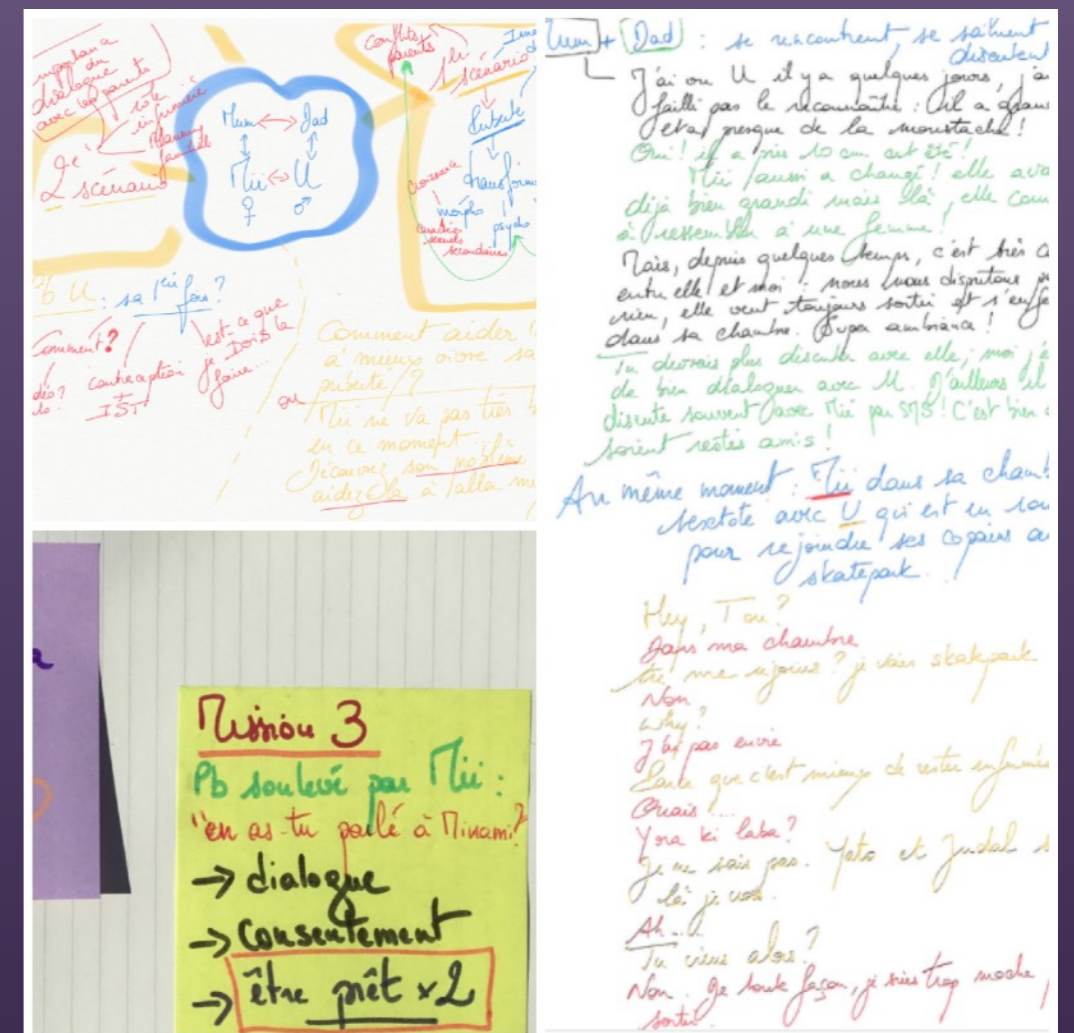 importance
du
dialogue
avec les parents
rôle
infirmière
Planning
familial
2 scénario
Mum Dad
Mii U
♀ ♂
Conflits
parents
1 scénario
Puberté
croissance
morpho
psycho
caractères
sexuels
secondaires
Pb U : sa 1ère fois ?
Comment ?
contraception
+
IST
est-ce que
je DOIS la
faire...
Comment aider
à mieux vivre sa
puberté ?
ou
Mii ne va pas très
en ce moment
Découvrez son problème
aidez la à aller
Mission 3
Pb soulevé par Mii :
"en as-tu parlé à Minami ?"
→ dialogue
→ Consentement
→ être prêt x2
Mum + Dad : se rencontrent, se saluent
discutent
J'ai vu U il y a quelques jours, j'ai
failli pas le reconnaître : il a
et a presque de la moustache !
Oui ! il a pris 10 cm cet été !
Mii aussi a changé ! elle
déjà bien grandi mais là, elle
à ressembler à une femme !
Mais, depuis quelques temps, c'est très
entre elle et moi : nous nous disputons
rien, elle veut toujours sortir et
dans sa chambre. Super ambiance !
Tu devrais plus discuter avec elle ; moi
de bien dialoguer avec U. D'ailleurs il
discute souvent avec Mii par SMS ! C'est bien
soient restés amis !
Au même moment : Mii dans sa
textote avec U qui est en
pour rejoindre ses copains au
skatepark.
Hey, T ou ?
Dans ma chambre
tu me rejoins ? je vais skatepark
Non
Why ?
J'ai pas envie
Parce que c'est mieux de rester
Ouais ...
Yora ki laba ?
Je ne sais pas. Yato et Judal
là je crois.
Ah...
Tu viens alors ?
Non. De toute façon, je suis trop moche
sortir.